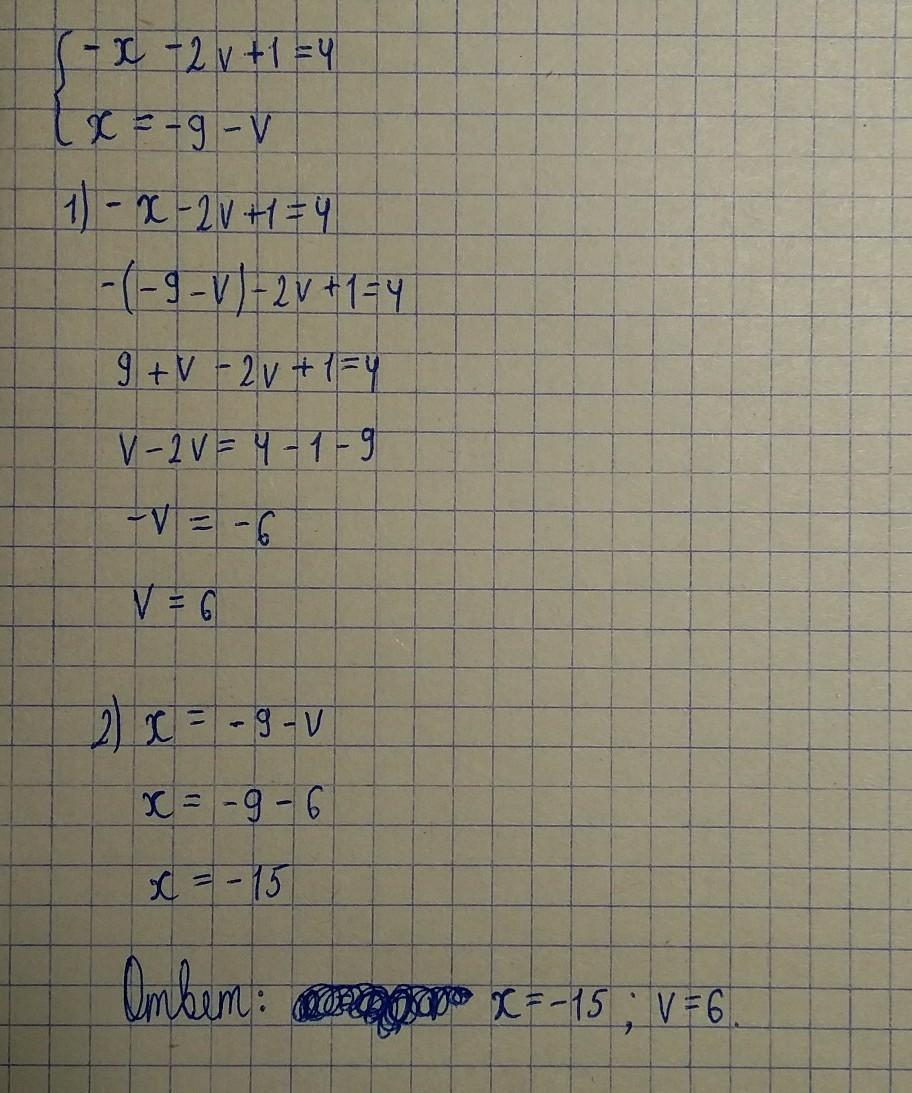 { - x - 2v + 1 = 4
x = -9 - v
1) - x - 2v + 1 = 4
-(-9 - v) - 2v + 1 = 4
9 + v - 2v + 1 = 4
v - 2v = 4 - 1 - 9
-v = -6
v = 6
2) x = -9 - v
x = -9 - 6
x = -15
Ответ: x = -15 ; v = 6.